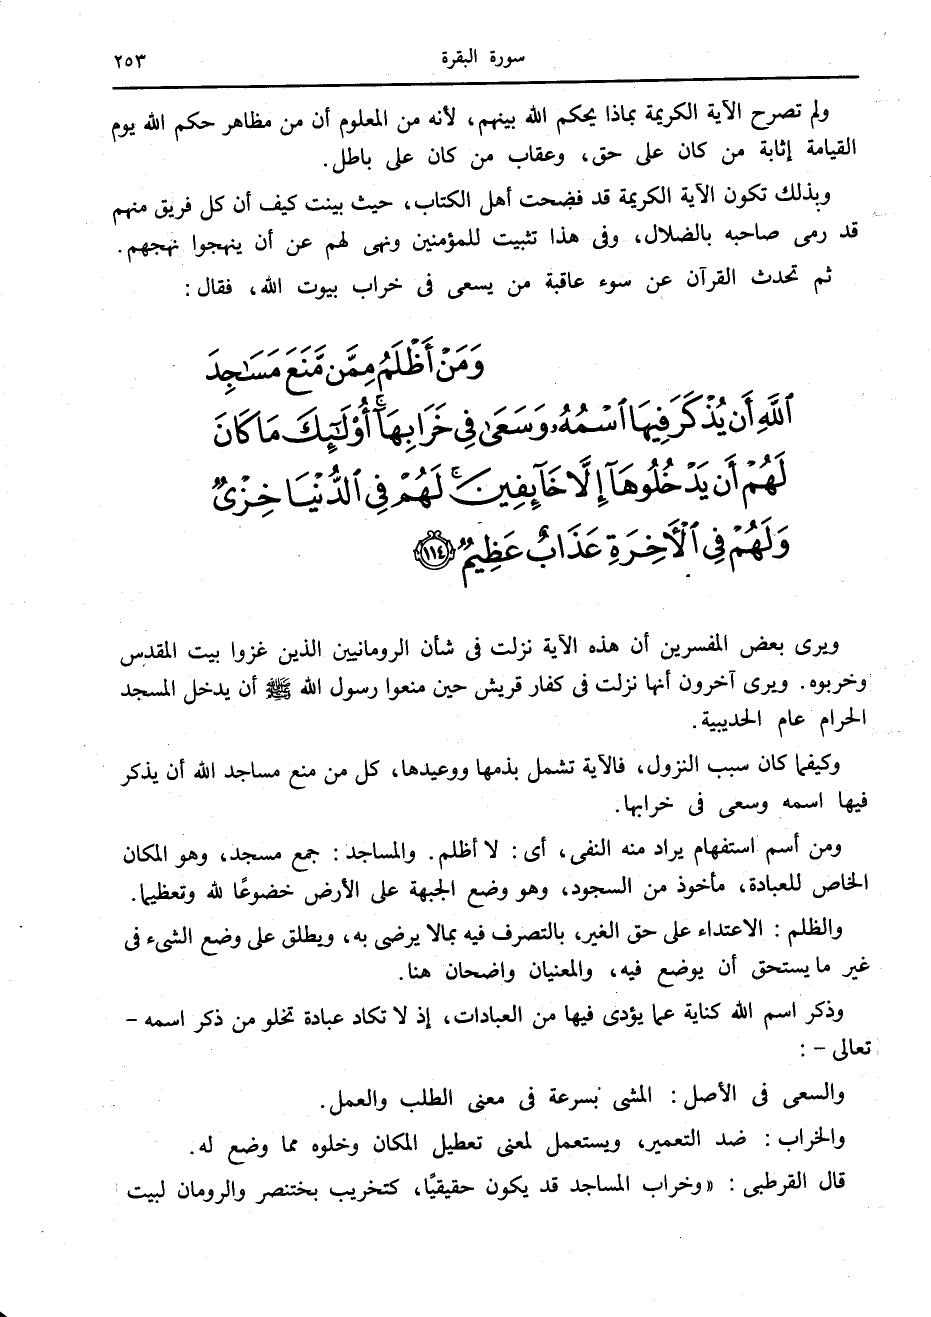 سورة البقرة ٢٥٣
ولم تصرح الآية الكريمة بماذا يحكم الله بينهم، لأنه من المعلوم أن من مظاهر حكم الله يوم
القيامة إثابة من كان على حق، وعقاب من كان على باطل.
وبذلك تكون الآية الكريمة قد فضحت أهل الكتاب، حيث بينت كيف أن كل فريق منهم
قد رمى صاحبه بالضلال، وفى هذا تثبيت للمؤمنين ونهى لهم عن أن ينهجوا نهجهم.
ثم تحدث القرآن عن سوء عاقبة من يسعى فى خراب بيوت الله، فقال:
وَمَنْ أَظْلَمُ مِمَّن مَّنَعَ مَسَٰجِدَ
ٱللَّهِ أَن يُذْكَرَ فِيهَا ٱسْمُهُۥ وَسَعَىٰ فِى خَرَابِهَآ ۚ أُو۟لَٰٓئِكَ مَا كَانَ
لَهُمْ أَن يَدْخُلُوهَآ إِلَّا خَآئِفِينَ ۚ لَهُمْ فِى ٱلدُّنْيَا خِزْىٌ
وَلَهُمْ فِى ٱلْأَخِرَةِ عَذَابٌ عَظِيمٌ ۝١١٤
ويرى بعض المفسرين أن هذه الآية نزلت فى شأن الرومانيين الذين غزوا بيت المقدس
وخربوه. ويرى آخرون أنها نزلت فى كفار قريش حين منعوا رسول الله ﷺ أن يدخل المسجد
الحرام عام الحديبية.
وكيفما كان سبب النزول، فالآية تشمل بذمها ووعيدها، كل من منع مساجد الله أن يذكر
فيها اسمه وسعى فى خرابها.
ومن أسم استفهام يراد منه النفى، أى: لا أظلم. والمساجد: جمع مسجد، وهو المكان
الخاص للعبادة، مأخوذ من السجود، وهو وضع الجبهة على الأرض خضوعًا لله وتعظيما.
والظلم: الاعتداء على حق الغير، بالتصرف فيه بمالا يرضى به، ويطلق على وضع الشىء فى
غير ما يستحق أن يوضع فيه، والمعنيان واضحان هنا.
وذكر اسم الله كناية عما يؤدى فيها من العبادات، إذ لا تكاد عبادة تخلو من ذكر اسمه –
تعالى – :
والسعى فى الأصل: المشى بسرعة فى معنى الطلب والعمل.
والخراب: ضد التعمير، ويستعمل لمعنى تعطيل المكان وخلوه مما وضع له.
قال القرطبى: «وخراب المساجد قد يكون حقيقيًا، كتخريب بختنصر والرومان لبيت